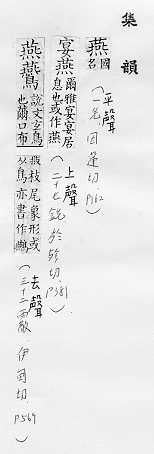 集韻
燕國名（平聲 一先 因蓮切. P162）
宴燕爾雅宴宴居息也或作燕（上聲 二十七銑 於殄切. P381）
燕鷰說文玄鳥也籋口布翄枝尾象形或从鳥亦書作（去聲 三十二霰 伊甸切. P569）